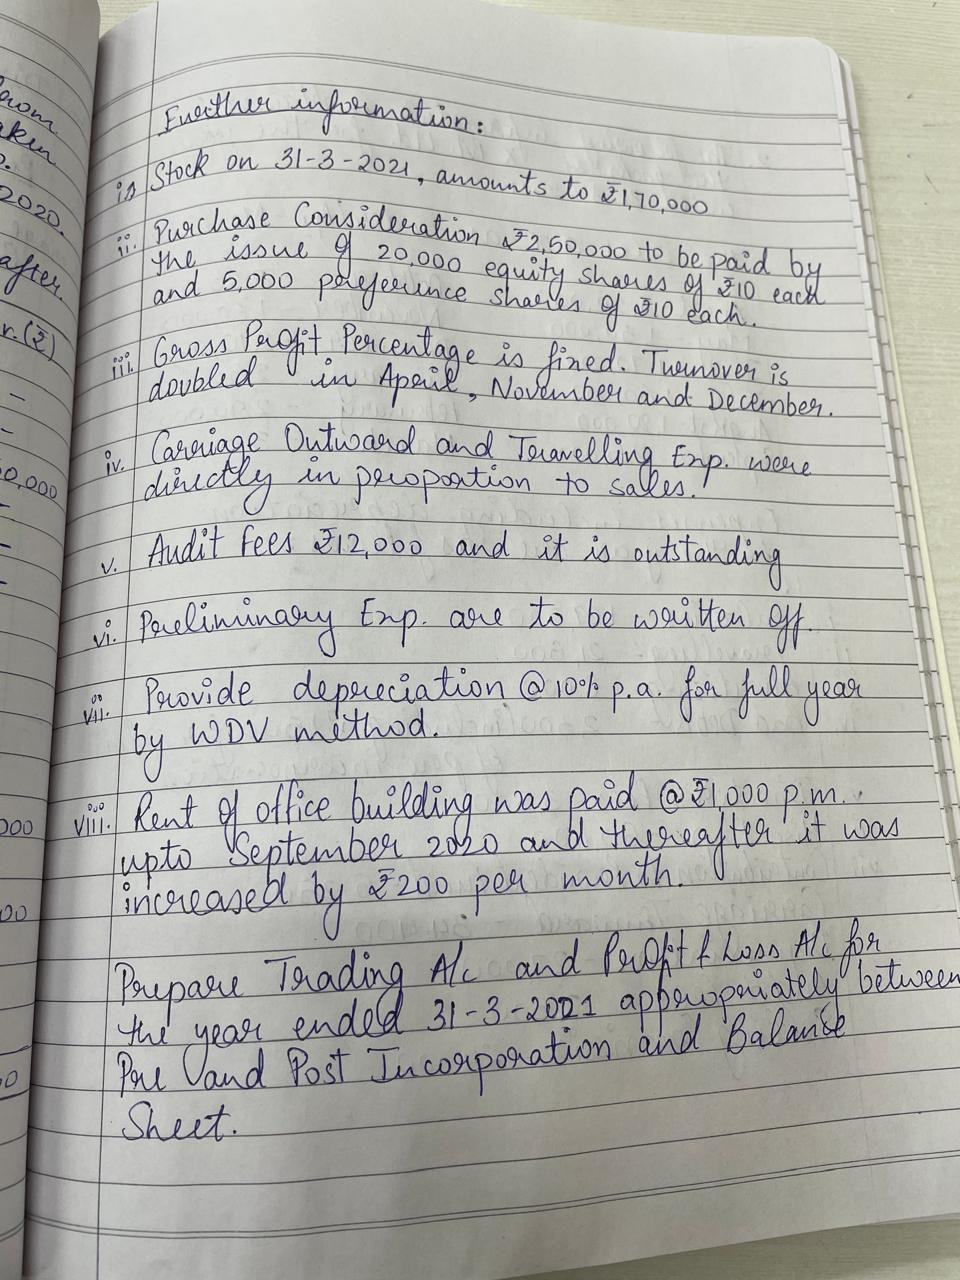 from
aken
2020.
after
r. (₹)
0,000
000
00
0
Further information:
i) Stock on 31-3-2021, amounts to ₹1,70,000
ii. Purchase Consideration ₹2,50,000 to be paid by
the issue of 20,000 equity shares of ₹10 each
and 5,000 preference shares of ₹10 each.
iii. Gross Profit Percentage is fixed. Turnover is
doubled in April, November and December.
iv. Carriage Outward and Travelling Exp. were
directly in proportion to sales.
v. Audit Fees ₹12,000 and it is outstanding
vi. Preliminary Exp. are to be written off.
vii. Provide depreciation @ 10% p.a. for full year
by WDV method.
viii. Rent of office building was paid @ ₹1,000 p.m.
upto September 2020 and thereafter it was
increased by ₹200 per month.
Prepare Trading A/c and Profit & Loss A/c for
the year ended 31-3-2021 appropriately between
Pre and Post Incorporation and Balance
Sheet.